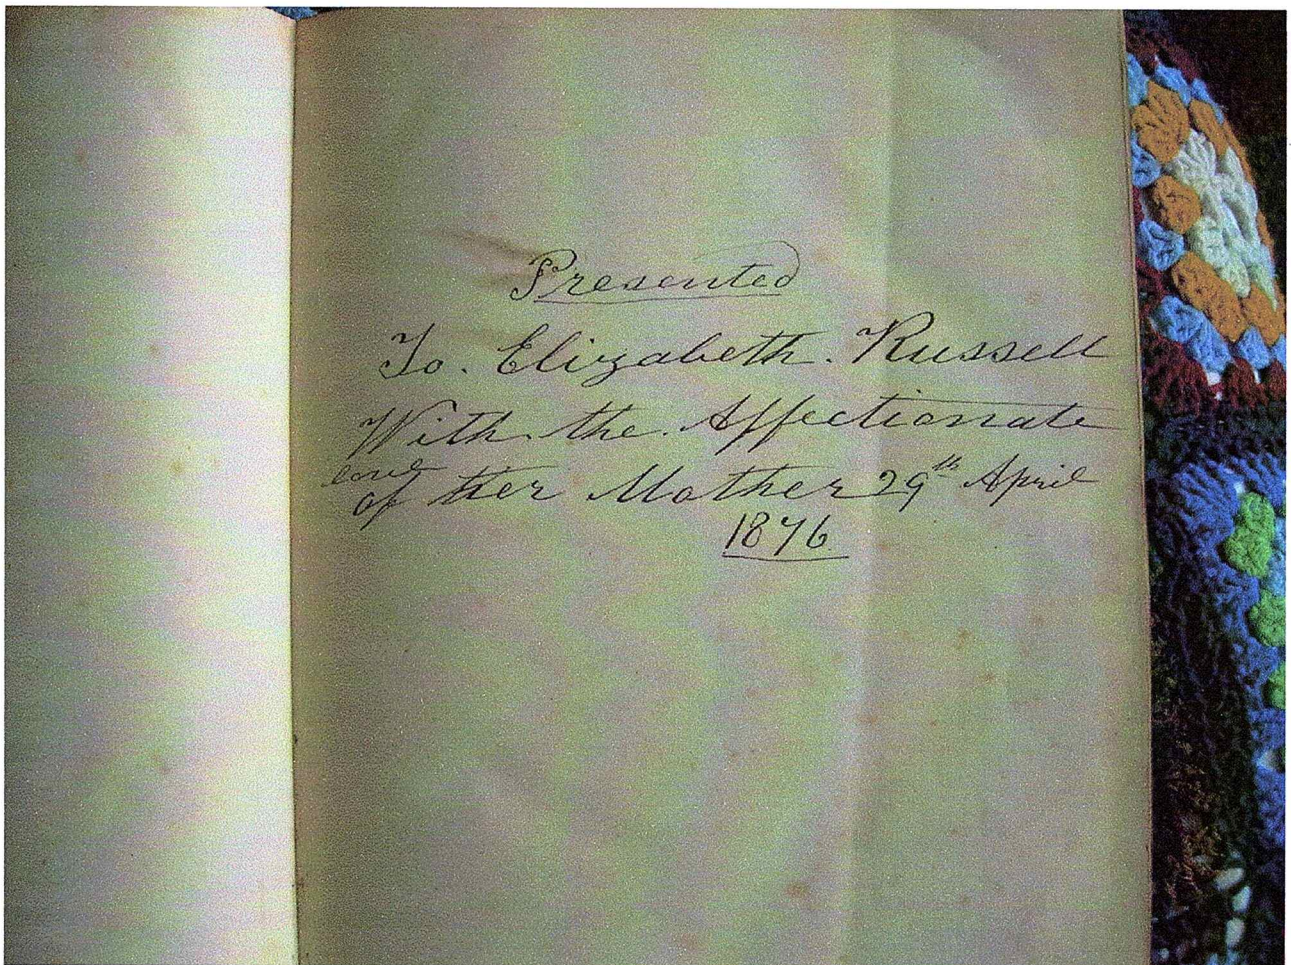 Presented
To. Elizabeth. Russell
With the Affectionate
love
of Her Mother 29th April
1876